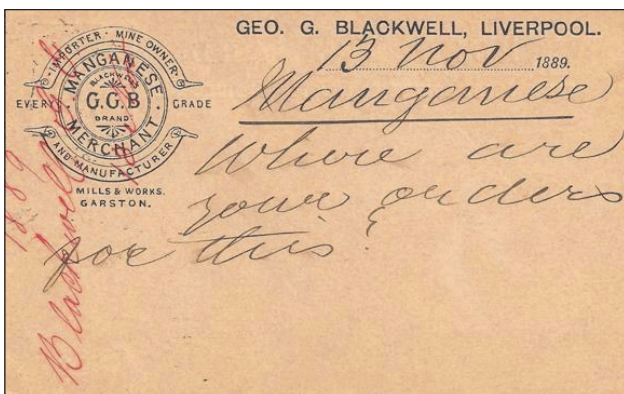 GEO. G. BLACKWELL, LIVERPOOL.
13 Nov 1889.
IMPORTER · MINE OWNER
MANGANESE
BLACKWELL
EVERY G.G.B GRADE
BRAND
MERCHANT
AND MANUFACTURER
MILLS & WORKS.
GARSTON.
Manganese
Where are
your orders
for this?
Blackwell
1889